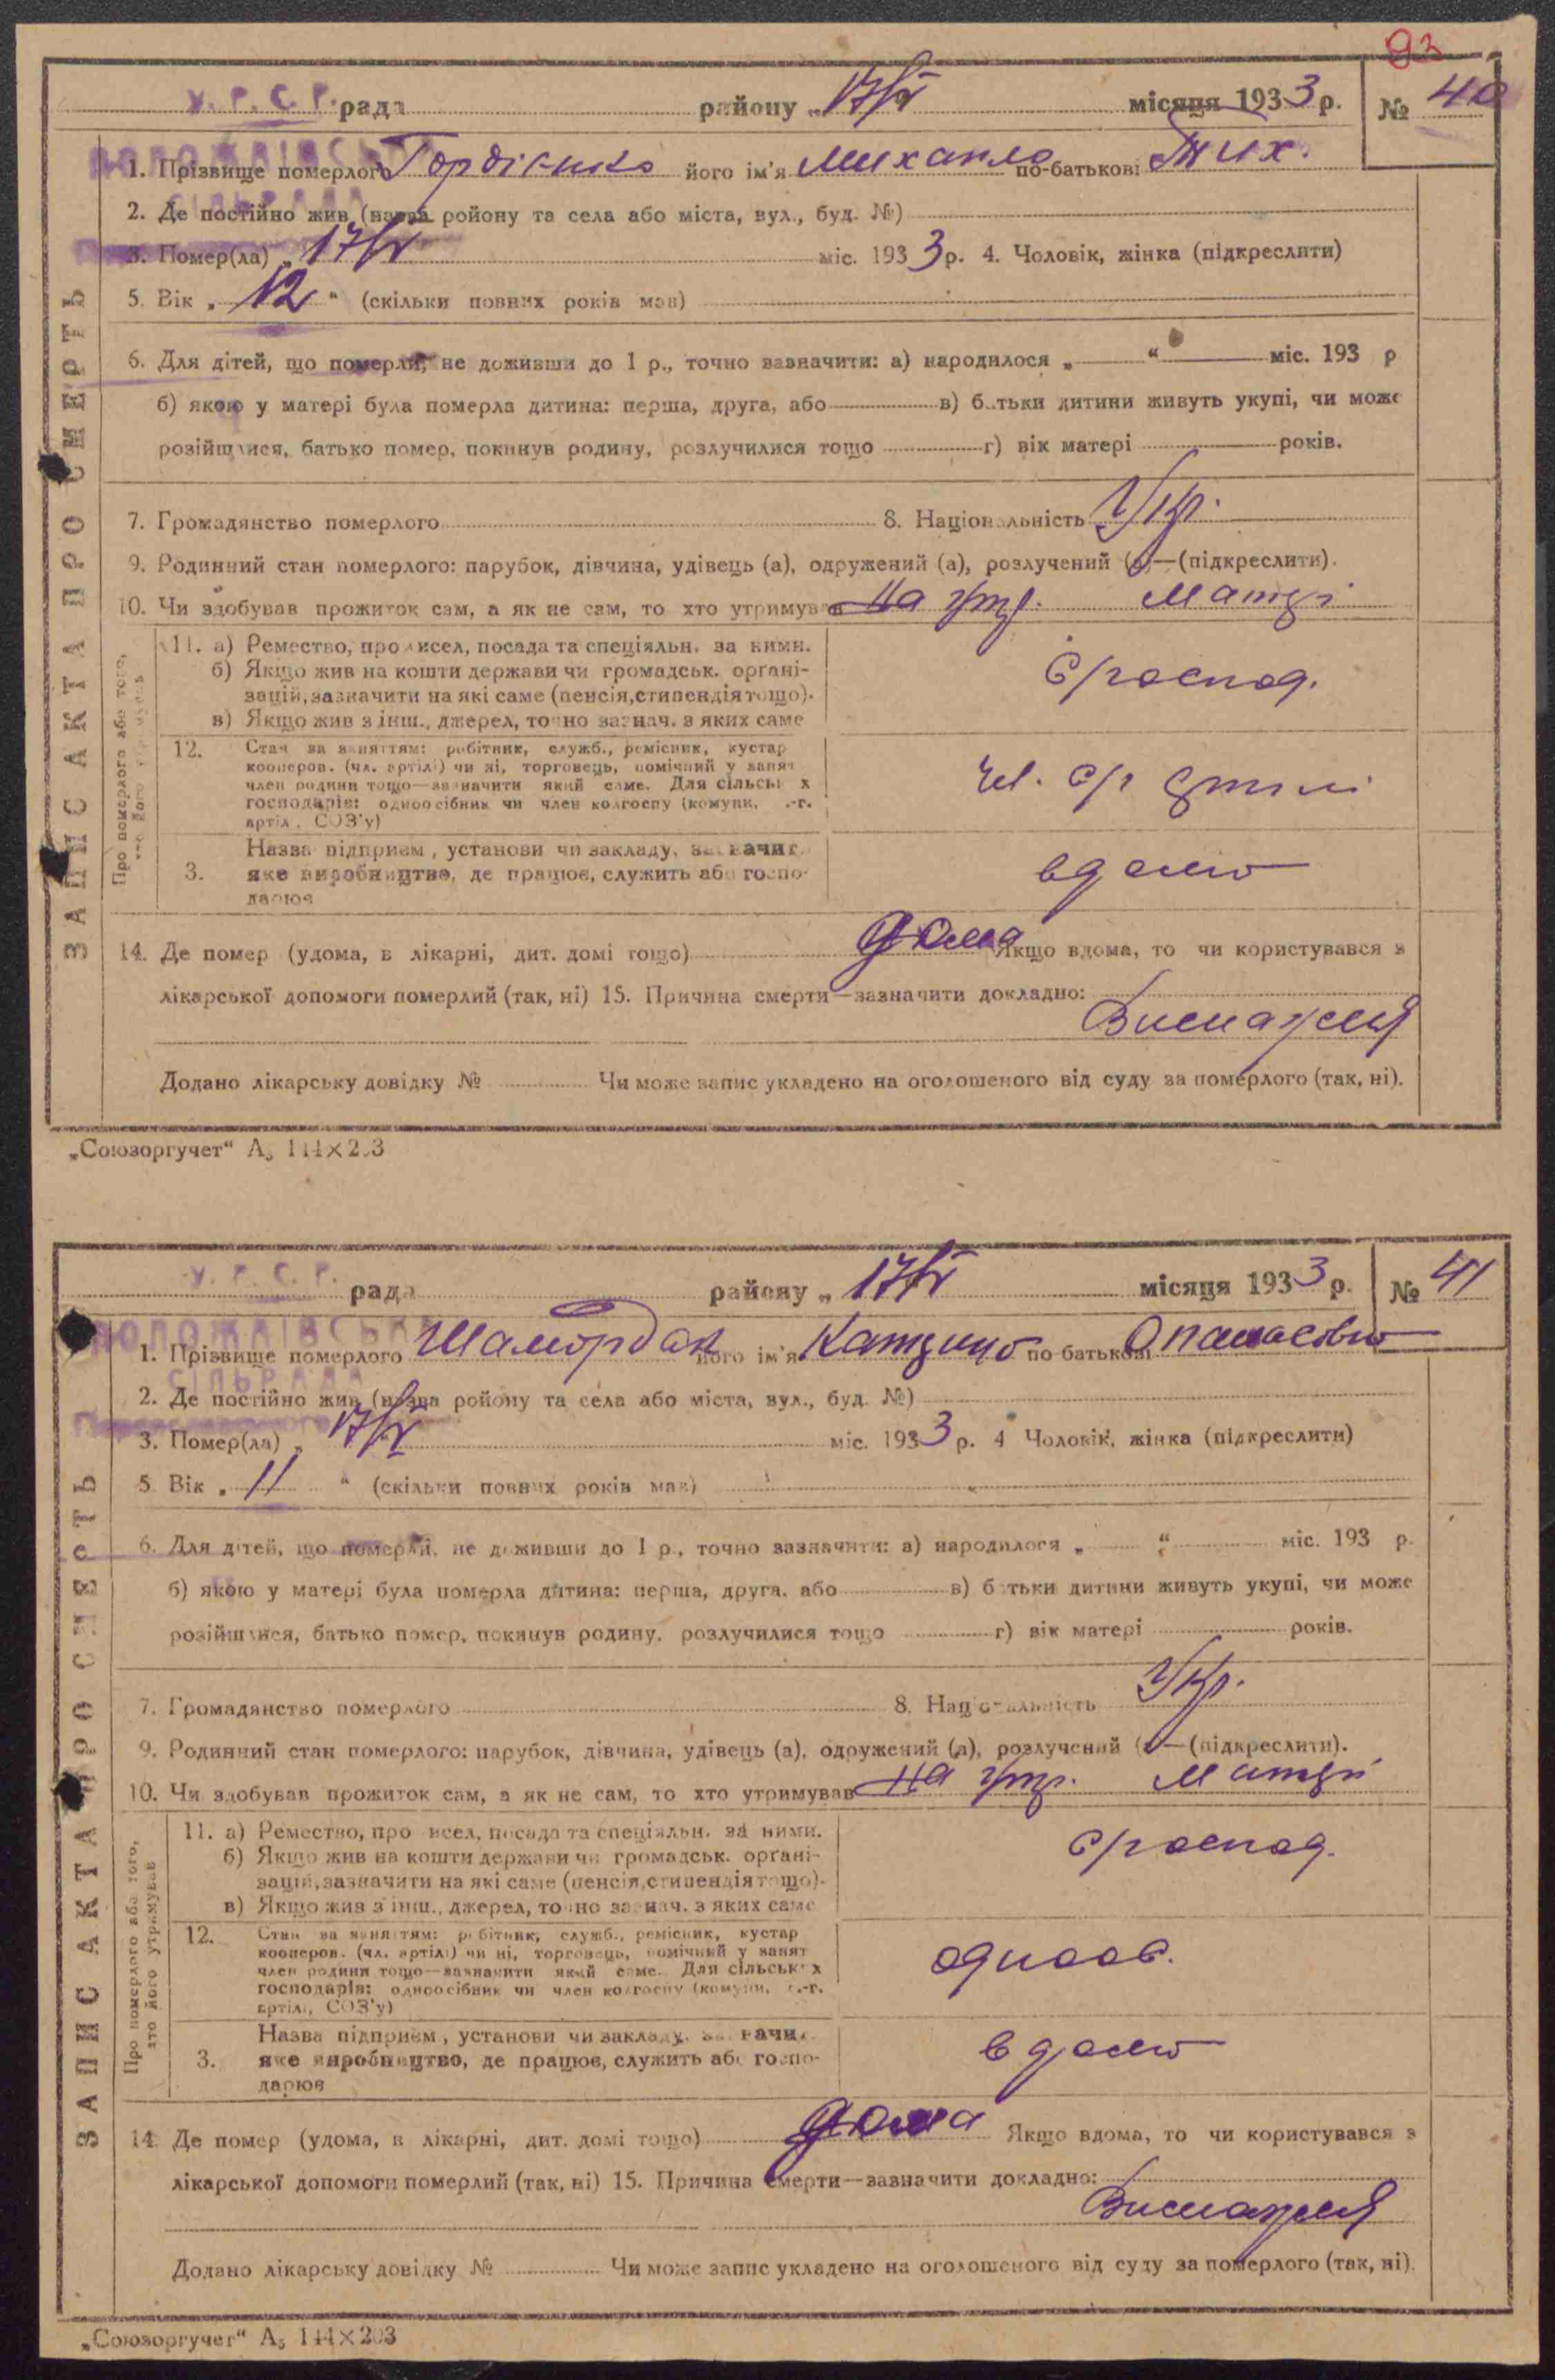 93
У.Р.С.Р. рада району „ 17/V місяця 1933 р. № 40
1. Прізвище померлого Гордієнко його ім'я Михайло по-батькові Тих.
СІЛЬРАДА
2. Де постійно жив (назва ройону та села або міста, вул., буд. №)
3. Помер(ла) „ 17/V міс. 1933 р. 4. Чоловік, жінка (підкреслити)
5. Вік „ 12 “ (скільки повних років мав)
6. Для дітей, що померли, не доживши до 1 р., точно зазначити: а) народилося „ “ міс. 193 р
б) якою у матері була померла дитина: перша, друга, або в) батьки дитини живуть укупі, чи може
розійшлися, батько помер, покинув родину, розлучилися тощо г) вік матері років.
7. Громадянство померлого 8. Національність Укр.
9. Родинний стан померлого: парубок, дівчина, удівець (а), одружений (а), розлучений (а)—(підкреслити).
10. Чи здобував прожиток сам, а як не сам, то хто утримував на утр. Матері
11. а) Ремество, промисел, посада та спеціяльн. за ними.
б) Якщо жив на кошти держави чи громадськ. орґані-
зацій, зазначити на які саме (пенсія, стипендія тощо).
в) Якщо жив з інш., джерел, точно зазнач. з яких саме
С/господ.
12. Стан за заняттям: робітник, служб., ремісник, кустар
кооперов. (чл. артілі) чи ні, торговець, помічний у занят
член родини тощо—зазначити який саме. Для сільськ х
господарів: одноосібник чи член колгоспу (комуни, с.-г.
артіл., СОЗ'у)
чл. с/г артілі
Назва підприєм , установи чи закладу, зазначит
3. яке виробництво, де працює, служить або госпо-
дарює
вдома
14. Де помер (удома, в лікарні, дит. домі тощо) дома Якщо вдома, то чи користувався з
лікарської допомоги померлий (так, ні) 15. Причина смерти—зазначити докладно:
Виснаження
Додано лікарську довідку № Чи може запис укладено на оголошеного від суду за померлого (так, ні).
ЗАПИС АКТА ПРО СМЕРТЬ
Про померлого або того,
хто його утримував
„Союзоргучет“ А₅ 144×203
У.Р.С.Р. рада району „ 17/V місяця 1933 р. № 41
1. Прізвище померлого Шамордак його ім'я Катерина по-батькові Опанасовна
СІЛЬРАДА
2. Де постійно жив (назва ройону та села або міста, вул., буд. №)
3. Помер(ла) „ 17/V міс. 1933 р. 4 Чоловік, жінка (підкреслити)
5 Вік „ 11 “ (скільки повних років мав)
6. Для дітей, що померли, не доживши до 1 р., точно зазначити: а) народилося „ “ міс. 193 р.
б) якою у матері була померла дитина: перша, друга, або в) батьки дитини живуть укупі, чи може
розійшлися, батько помер, покинув родину, розлучилися тощо г) вік матері років.
7. Громадянство померлого 8. Національність Укр.
9. Родинний стан померлого: парубок, дівчина, удівець (а), одружений (а), розлучений (а)—(підкреслити).
10. Чи здобував прожиток сам, а як не сам, то хто утримував на утр. Матері
11. а) Ремество, промисел, посада та спеціяльн. за ними.
б) Якщо жив на кошти держави чи громадськ. орґані-
зацій, зазначити на які саме (пенсія, стипендія тощо).
в) Якщо жив з інш., джерел, точно зазнач. з яких саме
С/господ.
12. Стан за заняттям: робітник, служб., ремісник, кустар
кооперов. (чл. артілі) чи ні, торговець, помічний у занят
член родини тощо—зазначити який саме. Для сільськ х
господарів: одноосібник чи член колгоспу (комуни, с.-г.
артілі, СОЗ'у)
одноос.
Назва підприєм , установи чи закладу, зазначит
3. яке виробництво, де працює, служить або госпо-
дарює
вдома
14. Де помер (удома, в лікарні, дит. домі тощо) дома Якщо вдома, то чи користувався з
лікарської допомоги померлий (так, ні) 15. Причина смерти—зазначити докладно:
Виснаження
Додано лікарську довідку № Чи може запис укладено на оголошеного від суду за померлого (так, ні).
ЗАПИС АКТА ПРО СМЕРТЬ
Про померлого або того,
хто його утримував
„Союзоргучет“ А₅ 144×203